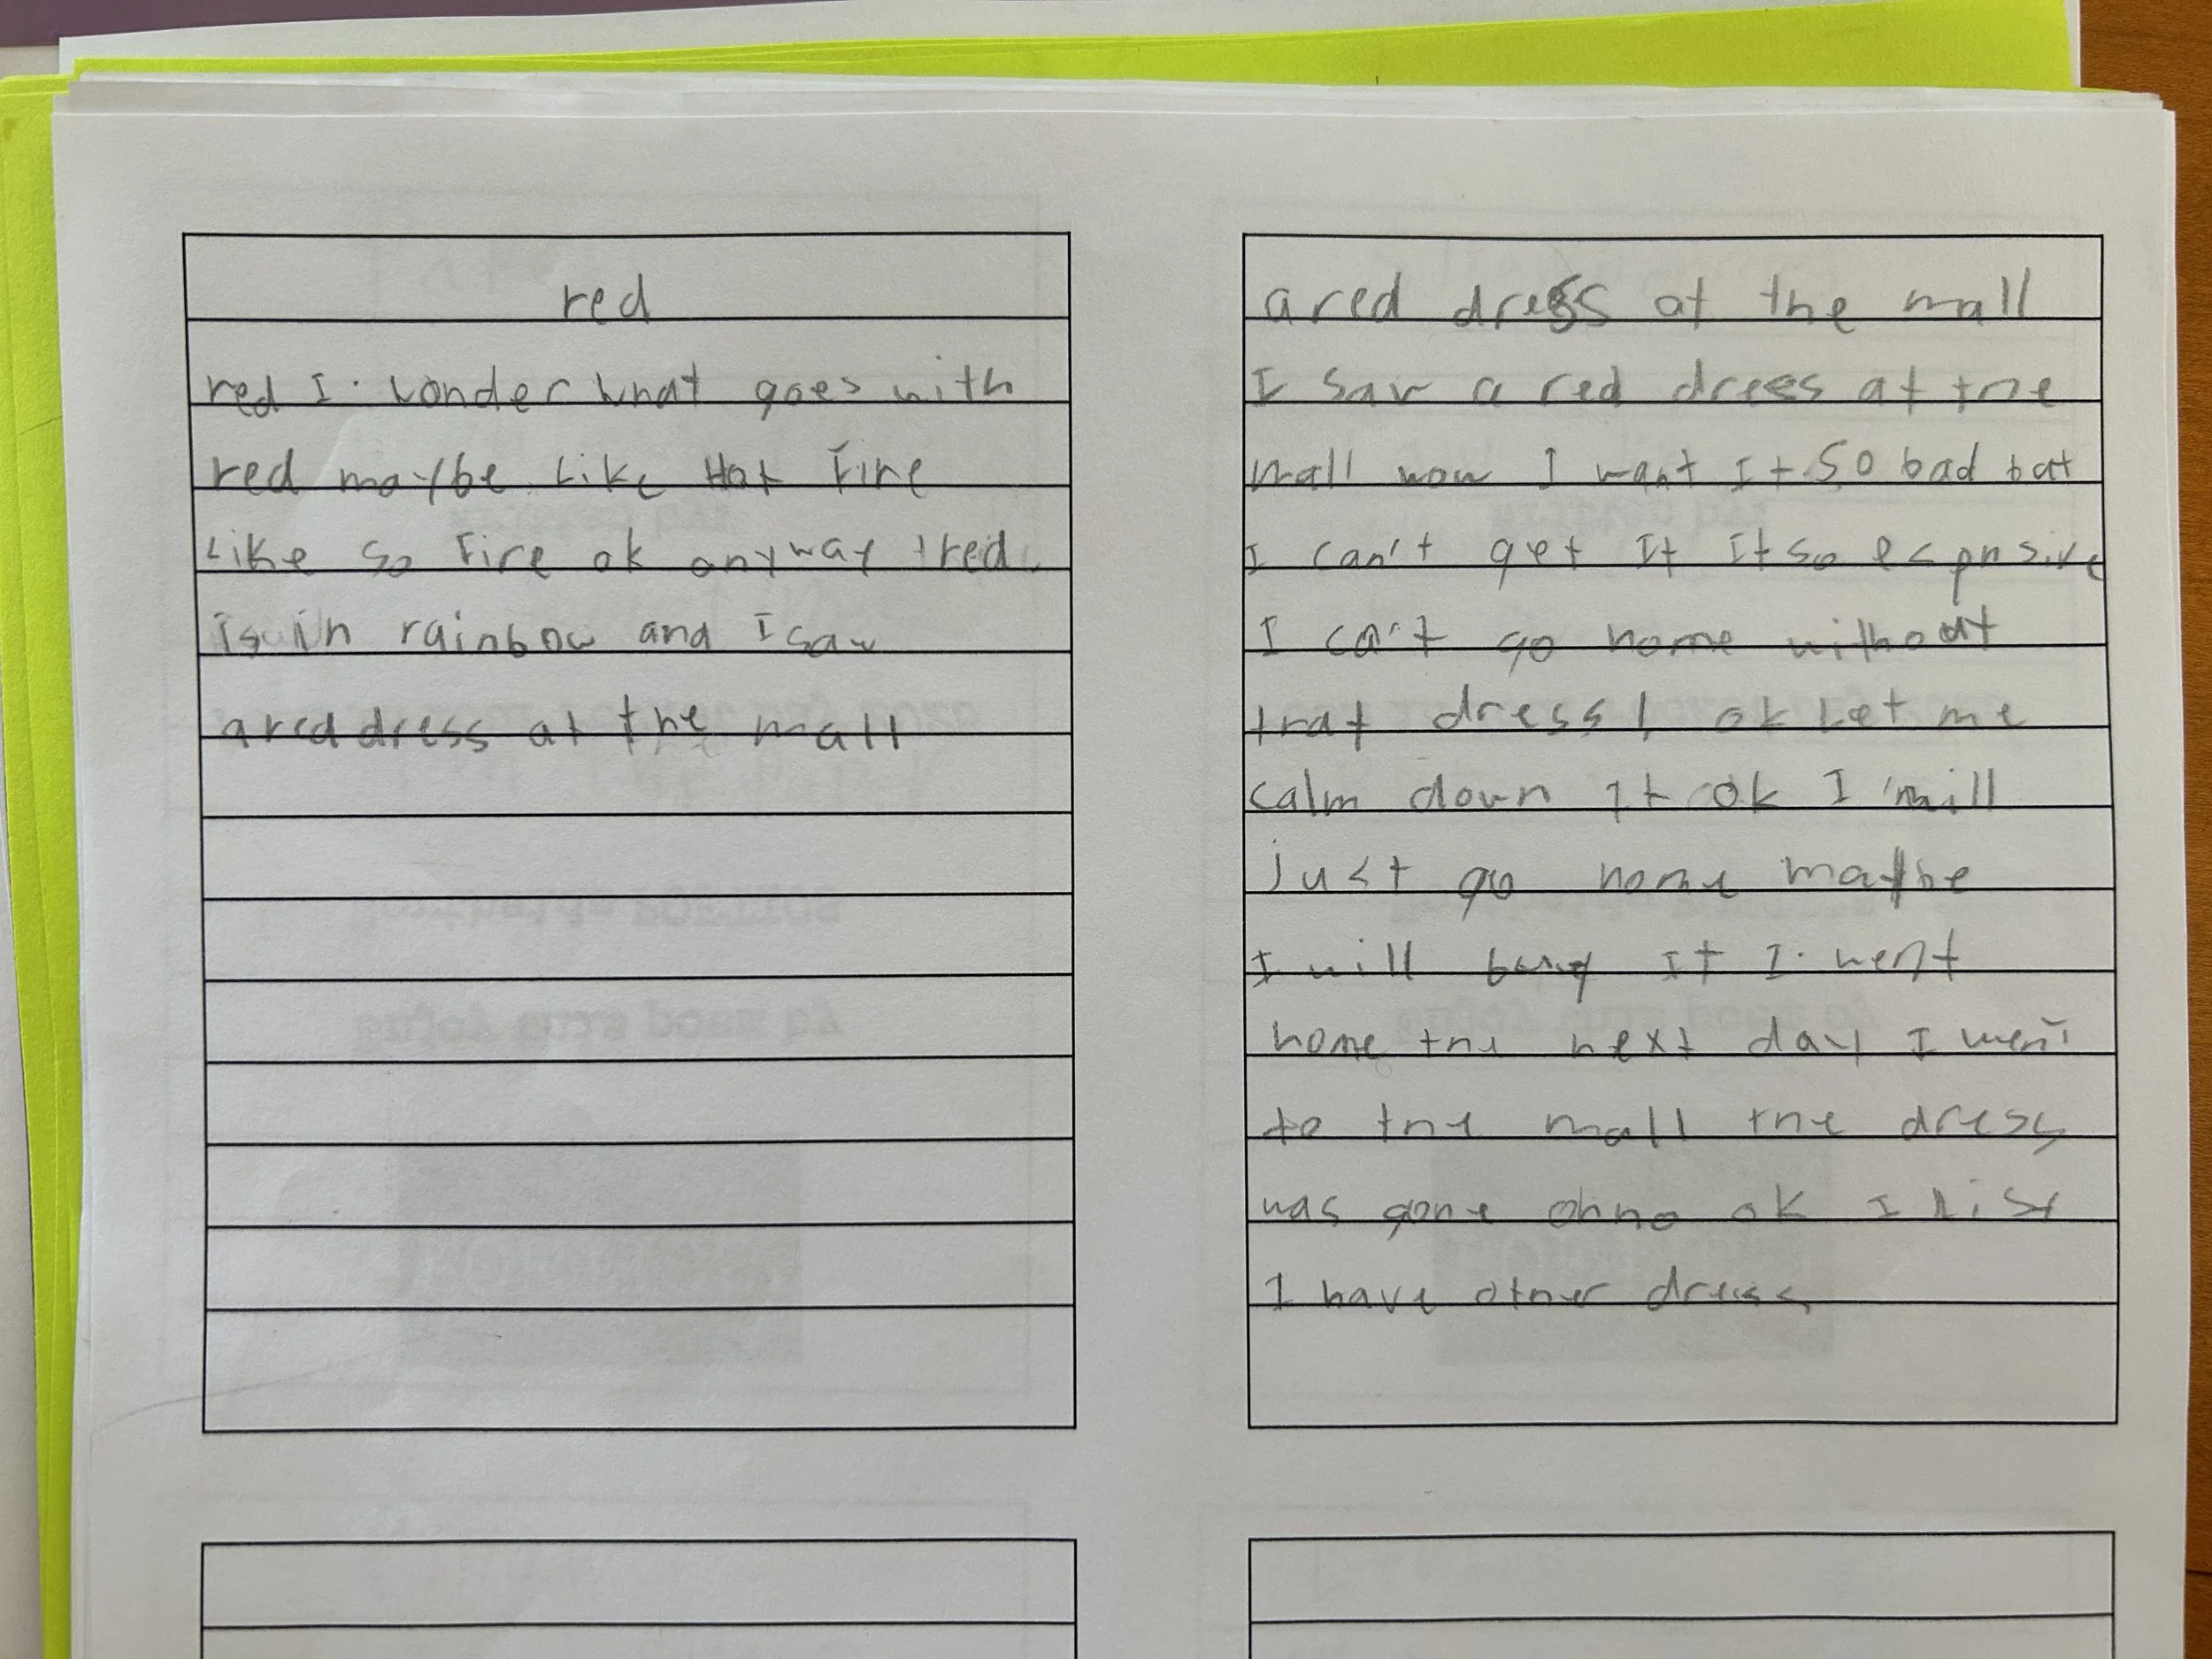 red
red I wonder what goes with
red maybe like Hot Fire
Like so Fire ok anyway red
is in rainbow and I saw
a red dress at the mall
a red dress at the mall
I saw a red drees at the
mall wow I want It So bad but
I can't get It It so
I can't go home without
that dress! ok Let me
calm down It ok I will
just go home maybe
I will buy it I went
home the next day I went
to the mall the dress
was gone oh no ok I
I have other dress